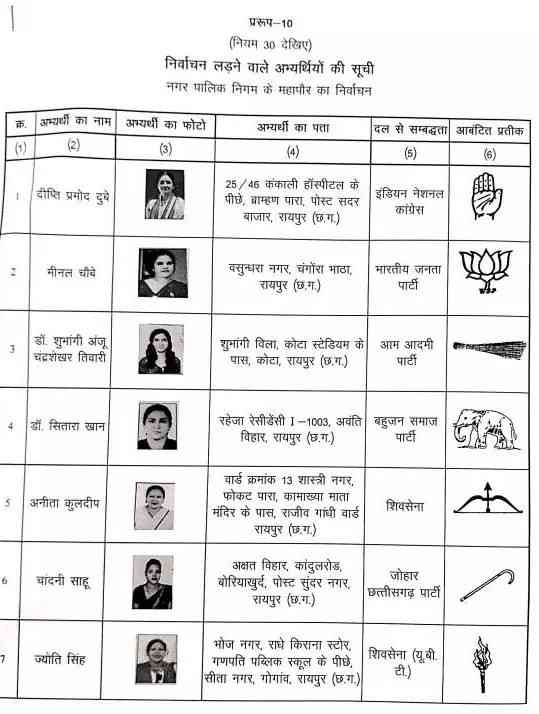 प्ररूप-10
(नियम 30 देखिए)
निर्वाचन लड़ने वाले अभ्यर्थियों की सूची
नगर पालिक निगम के महापौर का निर्वाचन
क्र. अभ्यर्थी का नाम अभ्यर्थी का फोटो अभ्यर्थी का पता दल से सम्बद्धता आबंटित प्रतीक
(1) (2) (3) (4) (5) (6)
1 दीप्ति प्रमोद दुबे
25/46 कंकाली हॉस्पीटल के
पीछे, ब्राम्हण पारा, पोस्ट सदर
बाजार, रायपुर (छ.ग.)
इंडियन नेशनल
कांग्रेस
2 मीनल चौबे
वसुन्धरा नगर, चंगोरा भाठा,
रायपुर (छ.ग.)
भारतीय जनता
पार्टी
3 डॉ. शुभांगी अंजू
चंद्रशेखर तिवारी
शुभांगी विला, कोटा स्टेडियम के
पास, कोटा, रायपुर (छ.ग.)
आम आदमी
पार्टी
4 डॉ. सितारा खान
रहेजा रेसीडेंसी I-1003, अवंति
विहार, रायपुर (छ.ग.)
बहुजन समाज
पार्टी
5 अनीता कुलदीप
वार्ड क्रमांक 13 शास्त्री नगर,
फोकट पारा, कामाख्या माता
मंदिर के पास, राजीव गांधी वार्ड
रायपुर (छ.ग.)
शिवसेना
6 चांदनी साहू
अक्षत विहार, कांदुलरोड,
बोरियाखुर्द, पोस्ट सुंदर नगर,
रायपुर (छ.ग.)
जोहार
छत्तीसगढ़ पार्टी
7 ज्योति सिंह
भोज नगर, राधे किराना स्टोर,
गणपति पब्लिक स्कूल के पीछे,
सीता नगर, गोगांव, रायपुर (छ.ग.)
शिवसेना (यू.बी.
टी.)